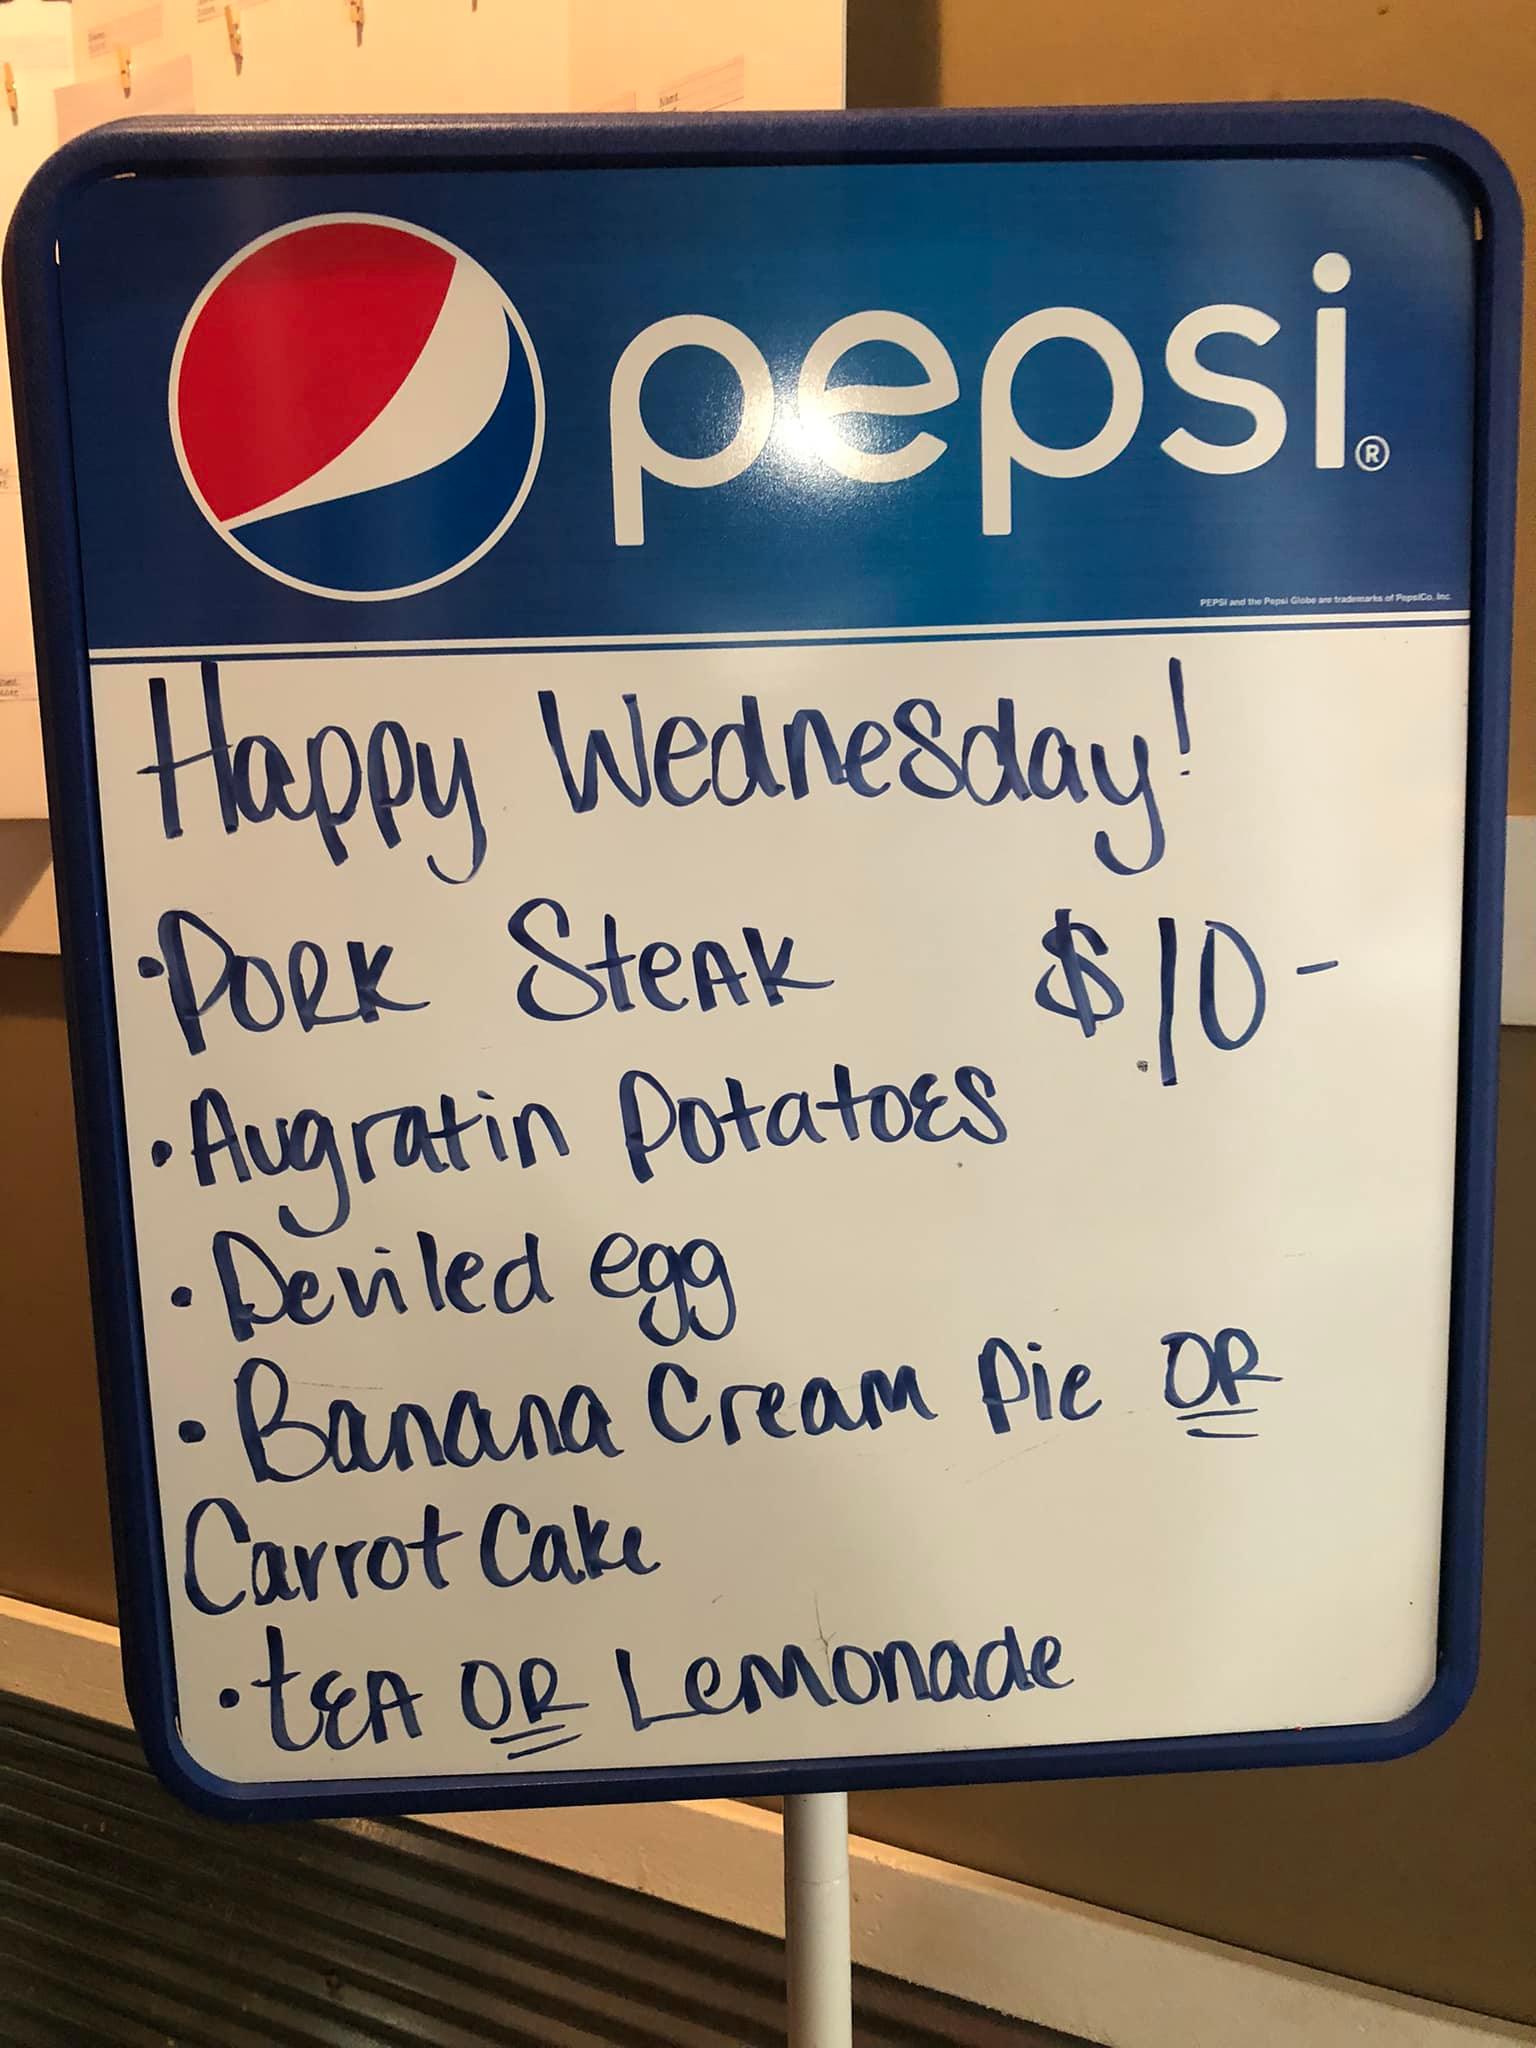 pepsi®
PEPSI and the Pepsi Globe are trademarks of PepsiCo, Inc.
Happy Wednesday!
• Pork Steak $10-
• Augratin Potatoes
• Deviled egg
• Banana Cream Pie OR
Carrot Cake
• tea OR Lemonade